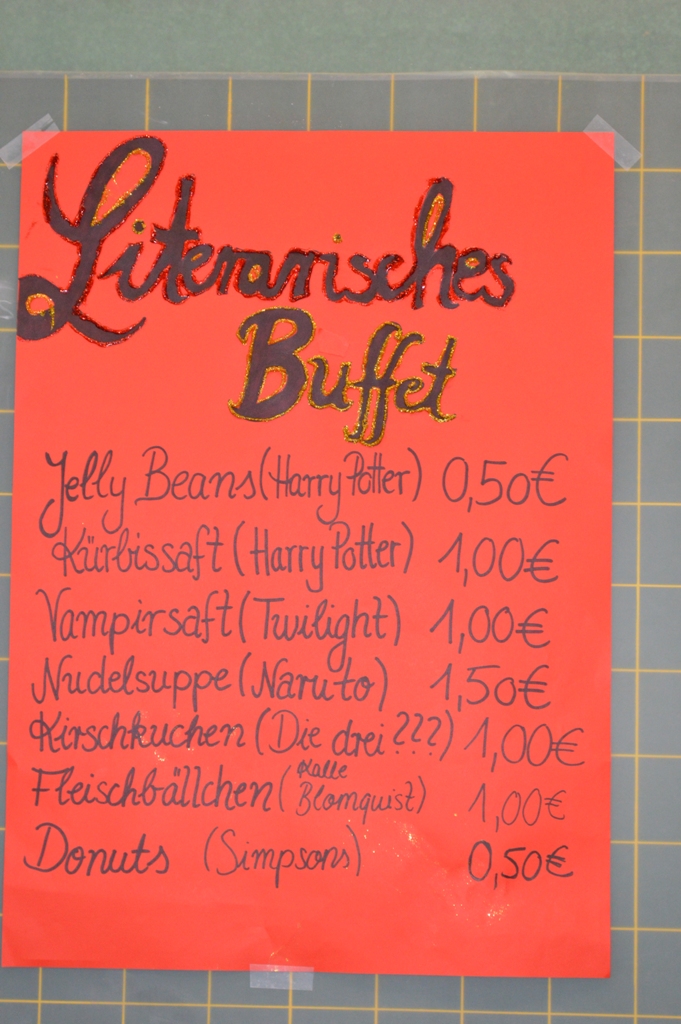 Literarisches
Buffet
Jelly Beans (Harry Potter) 0,50€
Kürbissaft (Harry Potter) 1,00€
Vampirsaft (Twilight) 1,00€
Nudelsuppe (Naruto) 1,50€
Kirschkuchen (Die drei ???) 1,00€
Fleischbällchen (Kalle Blomquist) 1,00€
Donuts (Simpsons) 0,50€